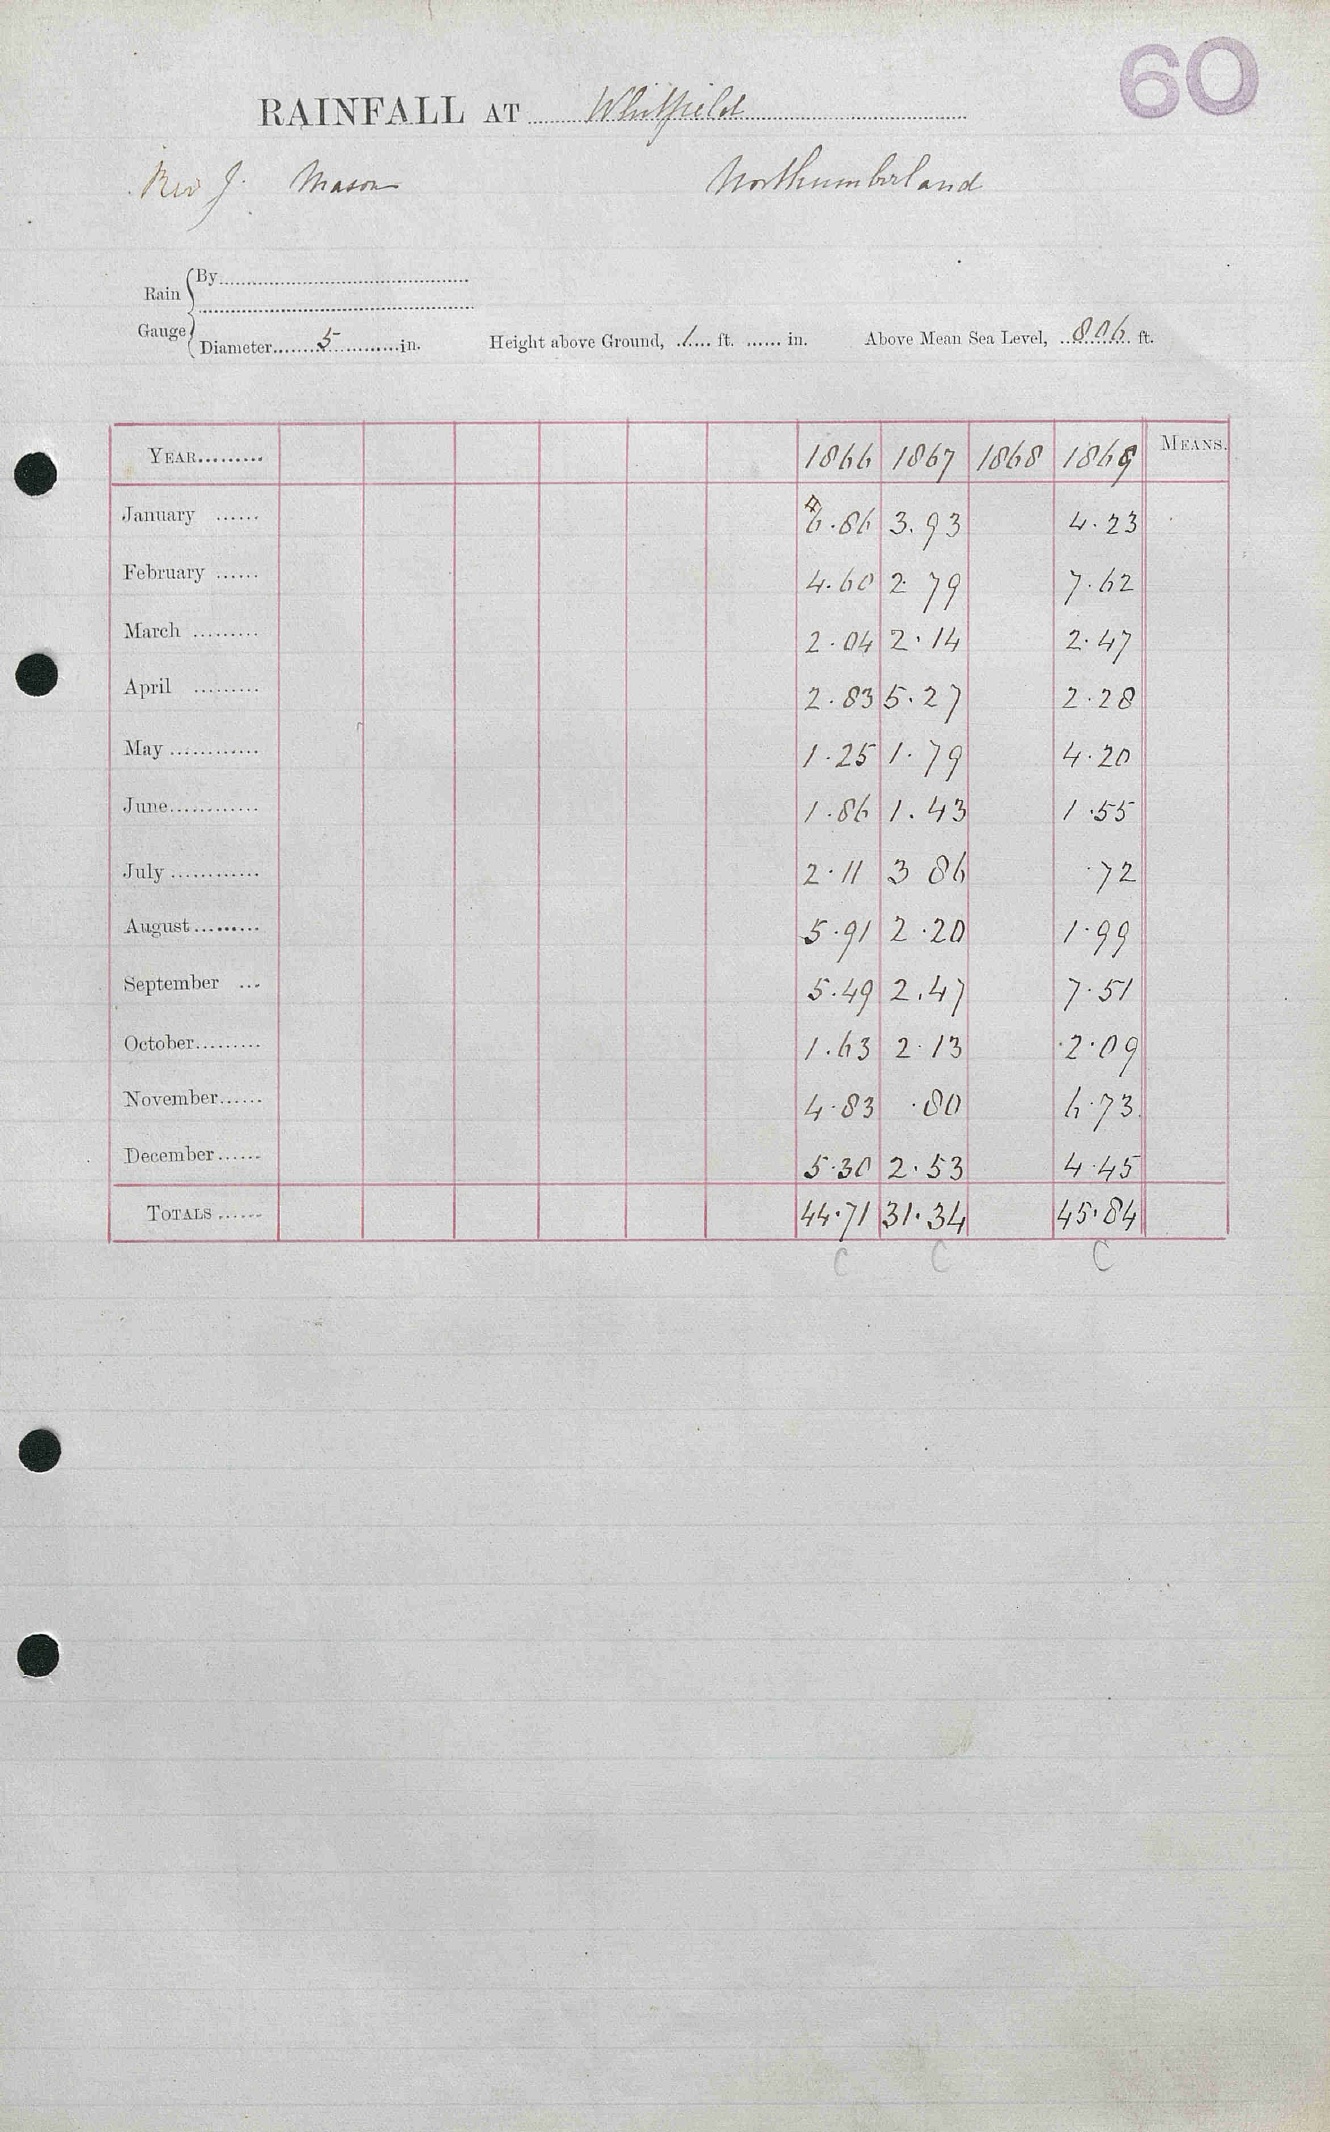 60
RAINFALL AT Whitfield
Rev J. Mason Northumberland
Rain Gauge { By
Diameter 5 in. Height above Ground, 1 ft. in. Above Mean Sea Level, 806 ft.
YEAR 1866 1867 1868 1869 MEANS.
January 6.86 3.93 4.23
February 4.60 2.79 7.62
March 2.04 2.14 2.47
April 2.83 5.27 2.28
May 1.25 1.79 4.20
June 1.86 1.43 1.55
July 2.11 3 86 .72
August 5.91 2.20 1.99
September 5.49 2.47 7.51
October 1.63 2.13 2.09
November 4.83 .80 6.73
December 5.30 2.53 4.45
TOTALS 44.71 31.34 45.84
C C C